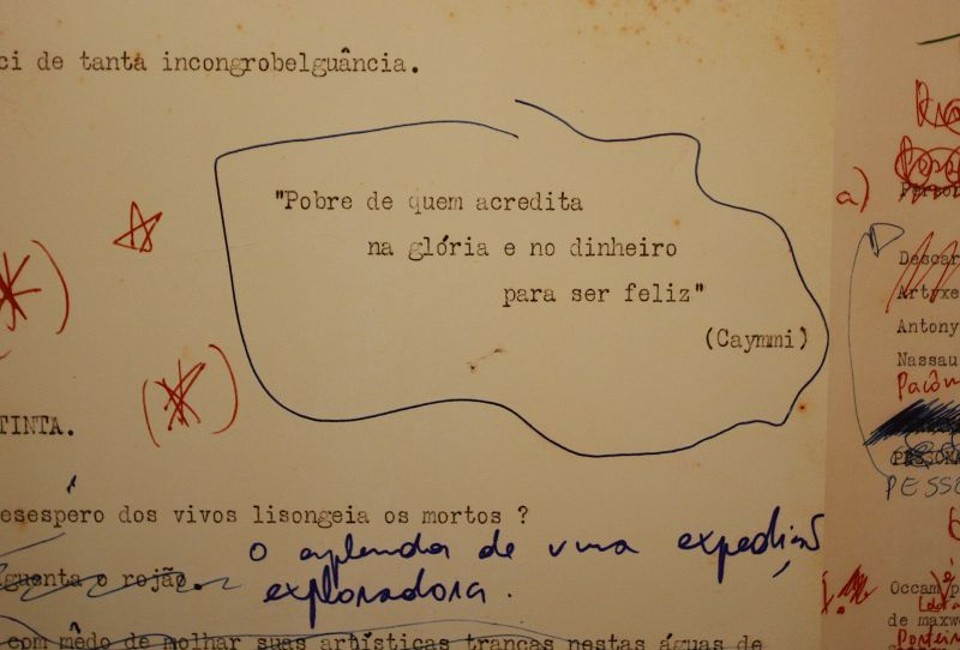 ci de tanta incongrobelguância.
"Pobre de quem acredita
na glória e no dinheiro
para ser feliz"
(Caymmi)
TINTA.
esespero dos vivos lisongeia os mortos ?
o de uma
exploradora.
guenta o rojão.
com mêdo de molhar suas artísticas tranças nestas águas de
a)
Descar
Artrxe
Antony
Nassau
PESSO
Occam p
de maxwe